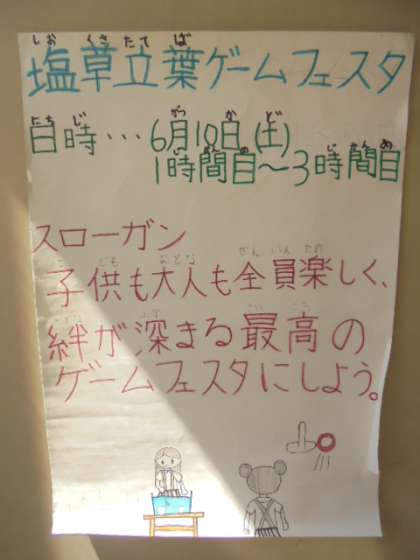 塩草立葉ゲームフェスタ
日時…6月10日(土)
1時間目～3時間目
スローガン
子供も大人も全員楽しく、
絆が深まる最高の
ゲームフェスタにしよう。